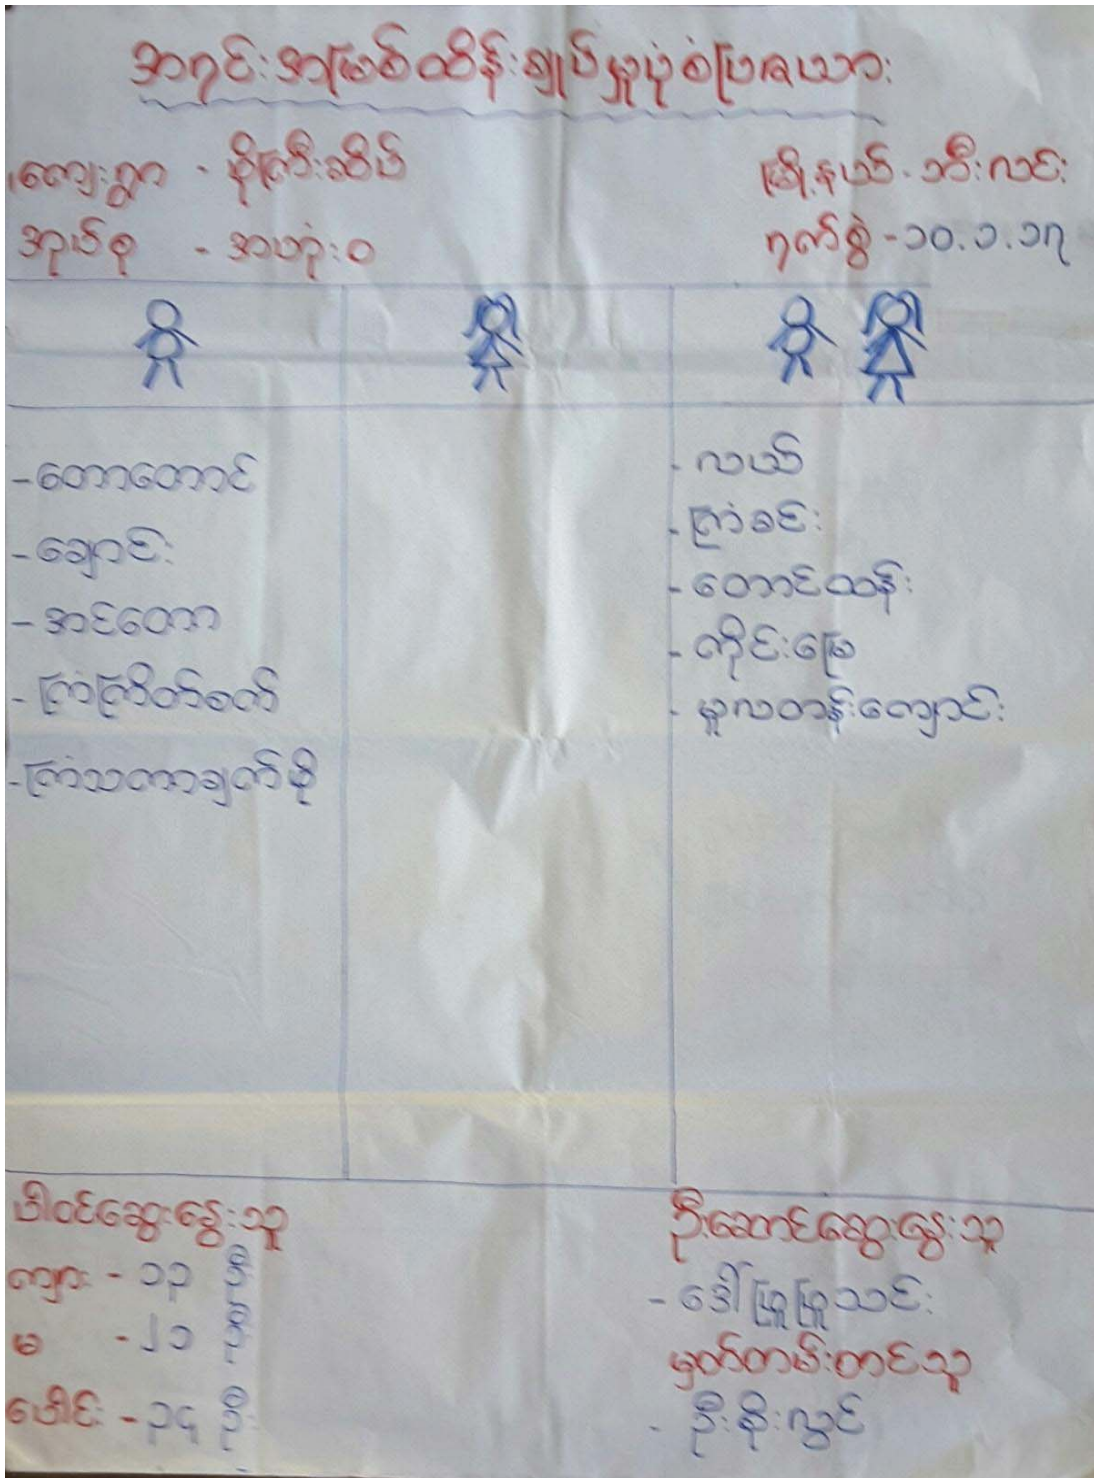 အရင်းအမြစ်ထိန်းချုပ်မှုပုံစံပြဇယား
ကျေးရွာ - ဖိုကြီးဆိပ် မြို့နယ် - ဘီးလင်း
အုပ်စု - အဟုံးဝ ရက်စွဲ - ၁၀.၁.၁၇
- တောတောင်
- ချောင်း
- အင်တော
- ကြံကြိတ်စက်
- ကြံသကာချက်ဖို
- လယ်
- ကြံခင်း
- တောင်ထန်း
- ကိုင်းမြေ
- မူလတန်းကျောင်း
ပါဝင်ဆွေးနွေးသူ
ကျား - ၁၃ ဦး
မ - ၂၁ ဦး
ပေါင်း - ၃၄ ဦး
ဦးဆောင်ဆွေးနွေးသူ
- ဒေါ်ဖြူဖြူသင်း
မှတ်တမ်းတင်သူ
- ဦးစိုးလွင်